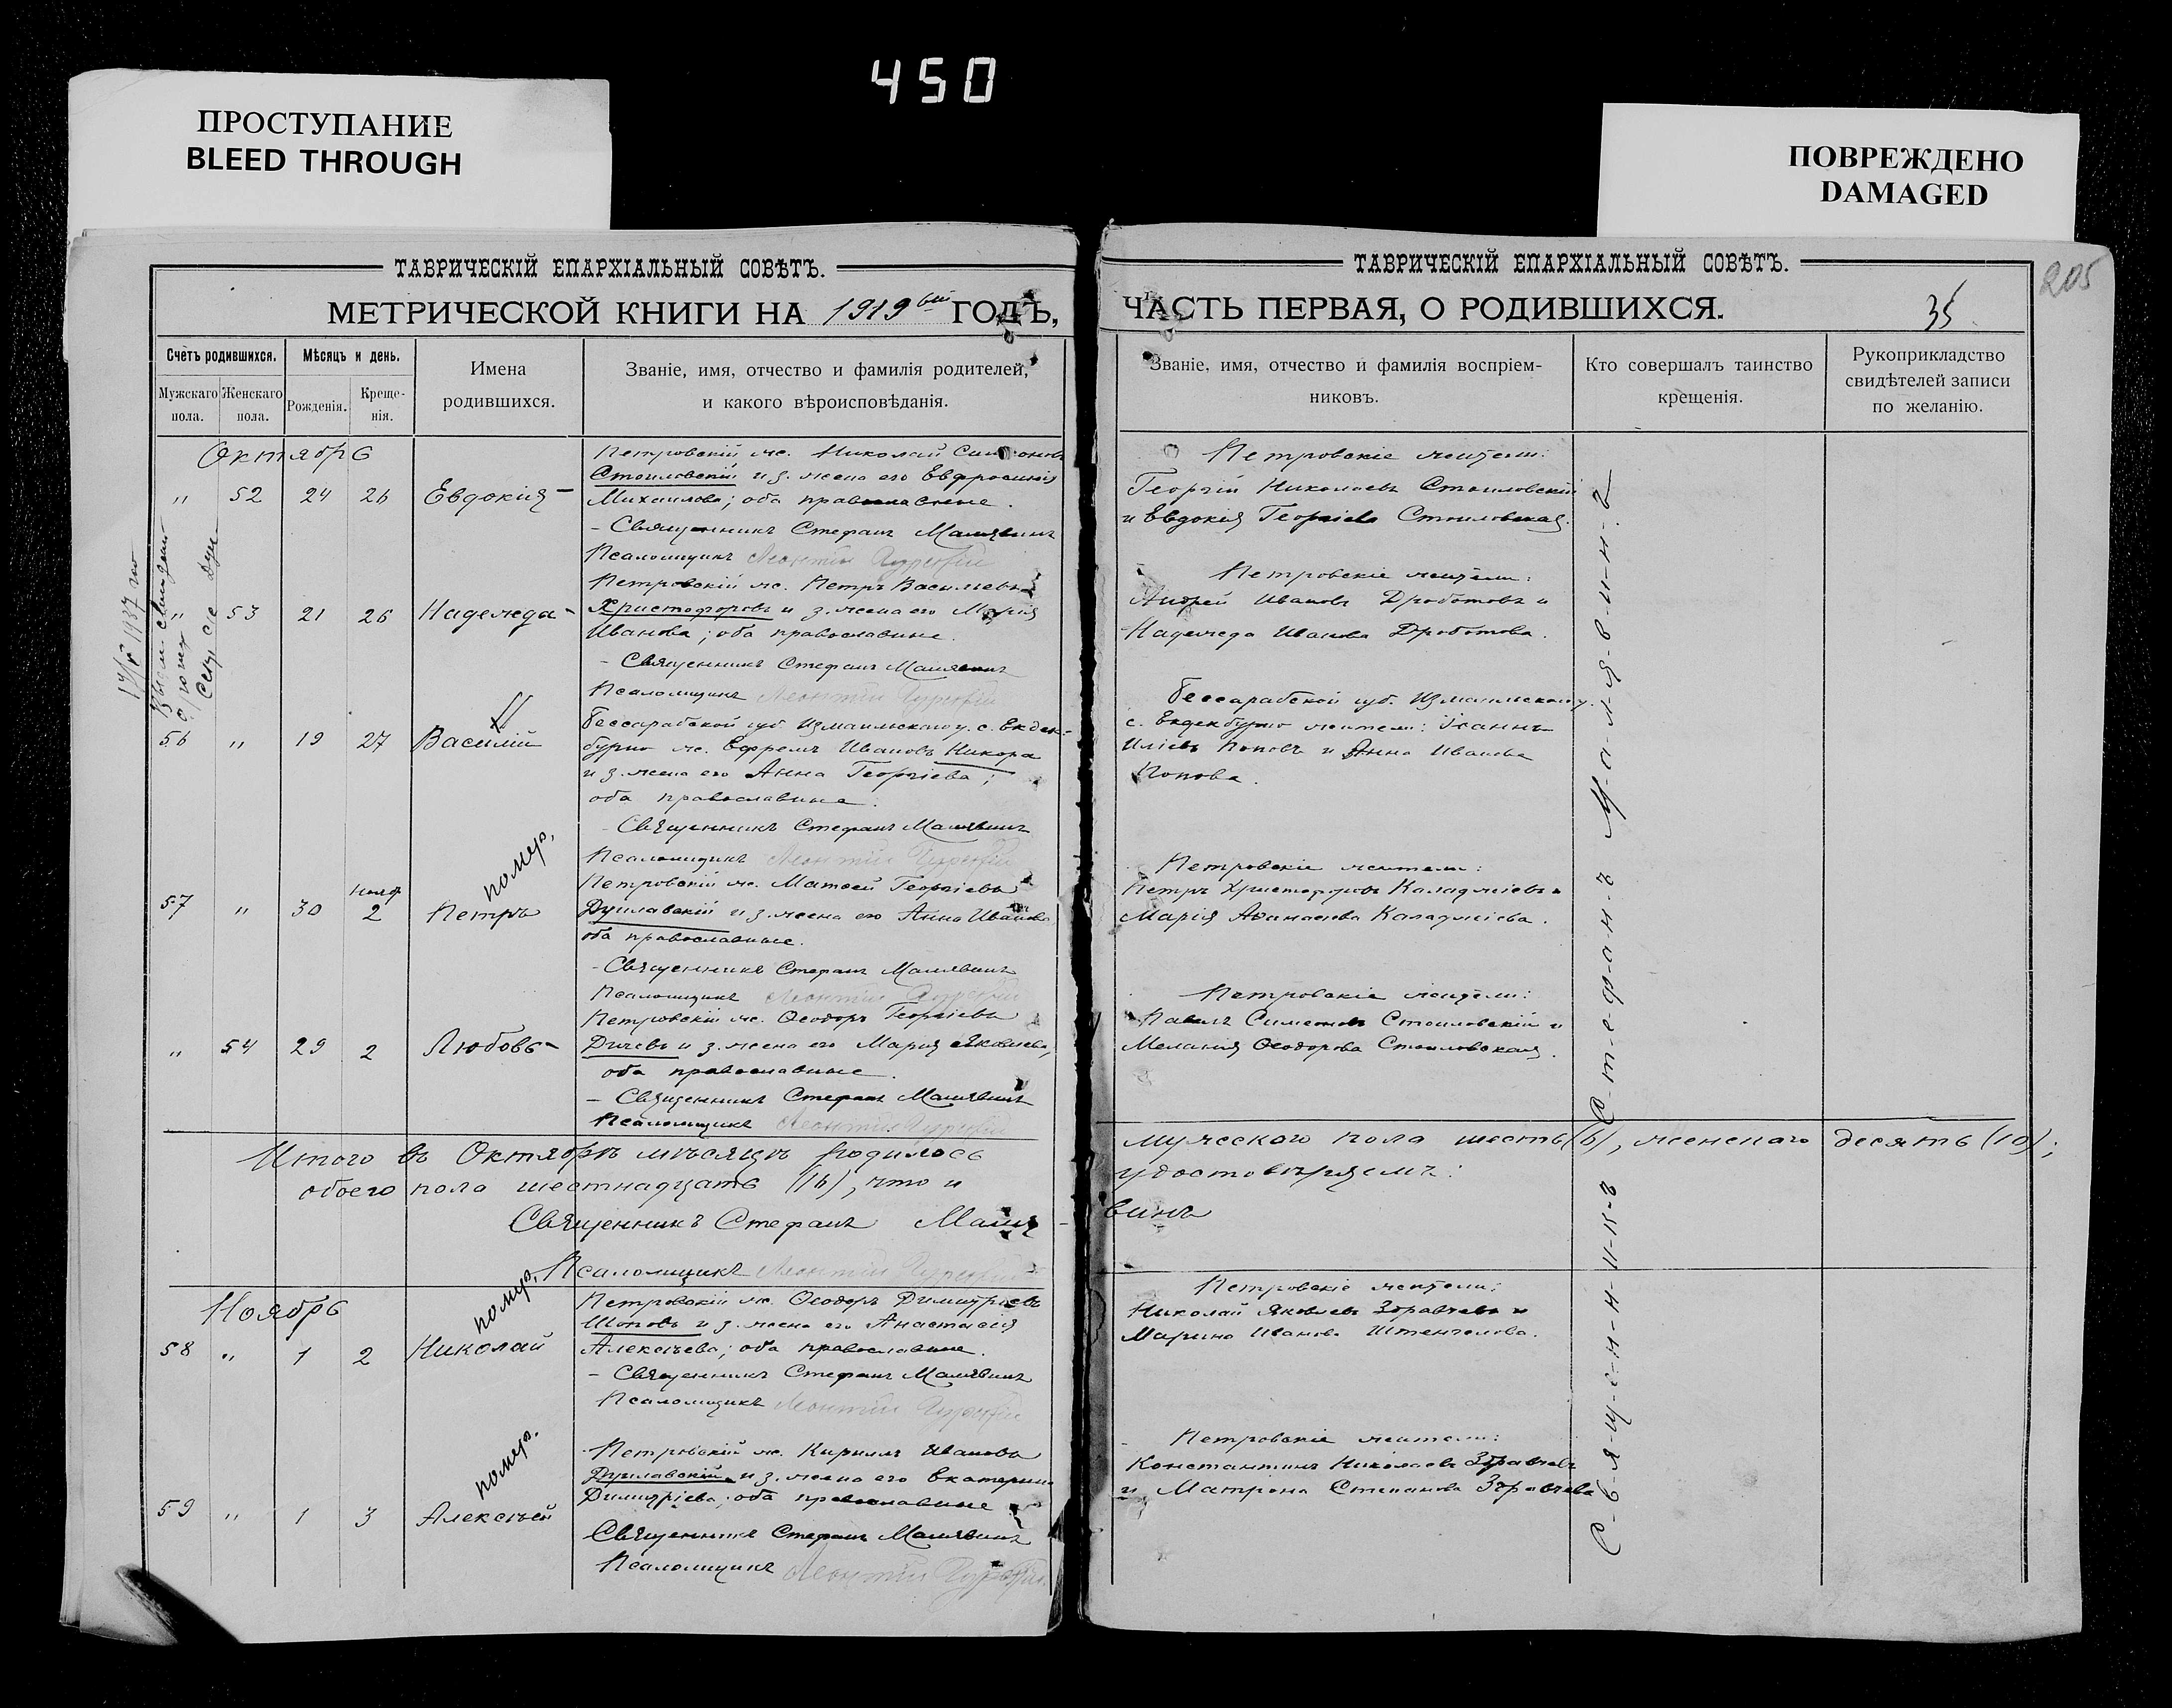 450
ПРОСТУПАНИЕ
BLEED THROUGH
ПОВРЕЖДЕНО
DAMAGED
ТАВРИЧЕСКІЙ ЕПАРХІАЛЬНЫЙ СОВѢТЪ.
МЕТРИЧЕСКОЙ КНИГИ НА 1919 ГОДЪ,
Счетъ родившихся.
Мужскаго пола.
Женскаго пола.
Мѣсяцъ и день.
Рожденія.
Креще-
нія.
Имена
родившихся.
Званіе, имя, отчество и фамилія родителей,
и какого вѣроисповѣданія.
Октябрь
" 52 24 26 Евдокія
Петровскій ж. Николай Симеоновъ
Стоиловскій и з. жена его Евфросинія
Михаилова; оба православные.
- Священникъ Стефанъ Малявинъ
Псаломщикъ Леонтій
" 53 21 26 Надежда
Петровскій ж. Петръ Васильевъ
Христофоровъ и з. жена его Марія
Иванова; оба православные.
- Священникъ Стефанъ Малявинъ
Псаломщикъ Леонтій
56 " 19 27 Василій
Бессарабской губ. Измаильскаго у. с.
бурно ж. Ефремъ Ивановъ Никора
и з. жена его Анна Георгіева;
оба православные.
- Священникъ Стефанъ Малявинъ
Псаломщикъ Леонтій
помер.
57 " 30 Нояб 2 Петръ
Петровскій ж. Матѳей Георгіевъ
Дуилавскій и з. жена его Анна Иванова
оба православные.
- Священникъ Стефанъ Малявинъ
Псаломщикъ Леонтій
" 54 29 2 Любовь
Петровскій ж. Ѳеодоръ Георгіевъ
Дичевъ и з. жена его Марія Яковлева,
оба православные.
- Священникъ Стефанъ Малявинъ
Псаломщикъ Леонтій
Итого въ Октябрѣ мѣсяцѣ родилось
обоего пола шестнадцать (16), что и
Священникъ Стефанъ Маля-
Псаломщикъ Леонтій
Ноябрь
помер.
58 " 1 2 Николай
Петровскій ж. Ѳеодоръ Димитріевъ
Шоповъ и з. жена его Анастасія
Алексѣева; оба православные.
- Священникъ Стефанъ Малявинъ
Псаломщикъ Леонтій
помер.
59 " 1 3 Алексѣй
Петровскій ж. Кириллъ Ивановъ
Дуилавскій и з. жена его Екатерина
Димитріева; оба православные
Священникъ Стефанъ Малявинъ
Псаломщикъ Леонтій
205
ТАВРИЧЕСКІЙ ЕПАРХІАЛЬНЫЙ СОВѢТЪ.
ЧАСТЬ ПЕРВАЯ, О РОДИВШИХСЯ.
35
Званіе, имя, отчество и фамилія воспріем-
никовъ.
Кто совершалъ таинство
крещенія.
Рукоприкладство
свидѣтелей записи
по желанію.
Петровскіе жители:
Георгій Николаевъ Стоиловскій
и Евдокія Георгіева Стоиловская.
Петровскіе жители:
Андрей Ивановъ Дроботовъ и
Надежда Иванова Дроботова.
Бессарабской губ. Измаильскаго у.
жители: Іоаннъ
Иліевъ Поповъ и Анна Иванова
Попова.
Петровскіе жители:
Петръ Христофоровъ Каладжіевъ и
Марія Аѳанасіева Каладжіева.
Петровскіе жители:
Павелъ Симеоновъ Стоиловскій и
Меланія Ѳеодорова Стоиловская.
мужескаго пола шесть (6), женскаго десять (10);
удостовѣряемъ:
винъ
Петровскіе жители:
Николай Яковлевъ Здравчевъ и
Марина Иванова
Петровскіе жители:
Константинъ Николаевъ Здравчевъ
и Матрона Степанова Здравчева
С-в-я-щ-е-н-н-и-к-ъ С-т-е-ф-а-н-ъ М-а-л-я-в-и-н-ъ